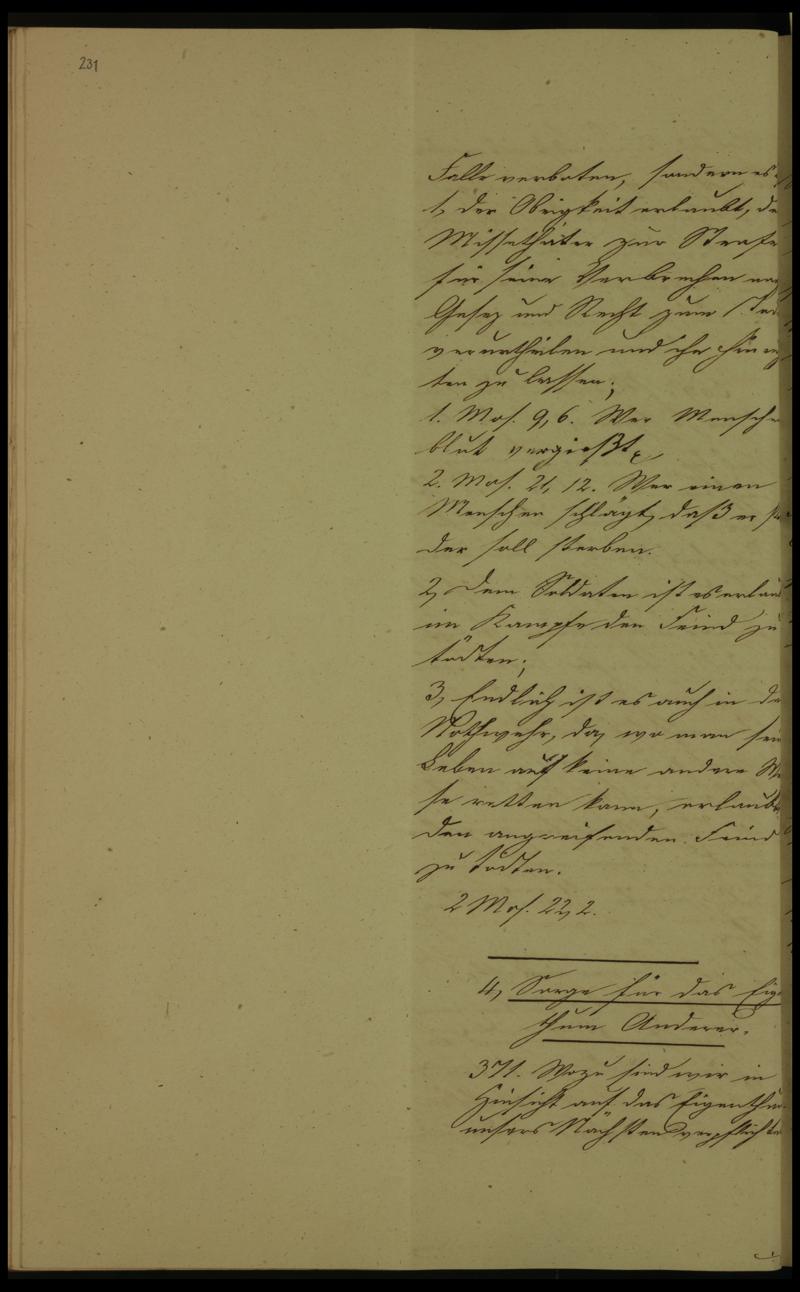 231
Falle verboten, sondern es
1, der Obrigkeit erlaubt, de
Missethäter zur Strafe
für seine Verbrechen nach
Gesez und Recht zum Tod
verurtheilen und ihn hinrich
ten zu lassen;
1. Mos. 9, 6. Wer Mensche
blut vergießt,
2. Mos. 21, 12. Wer einen
Menschen schlägt, daß er
der soll sterben.
2, dem Soldaten ist es erlau
im Kampfe den Feind zu
tödten;
3, Endlich ist es auch in de
Nothwehr, da, wo man sein
Leben auf keine andere Wei
se retten kann, erlaubt
den angreifenden Feind
zu tödten.
2 Mos. 22, 2.
4, Sorge für das Eige
thum Anderer.
371. Wozu sind wir in
Hinsicht auf das Eigenthum
unsers Nächsten verpflichte